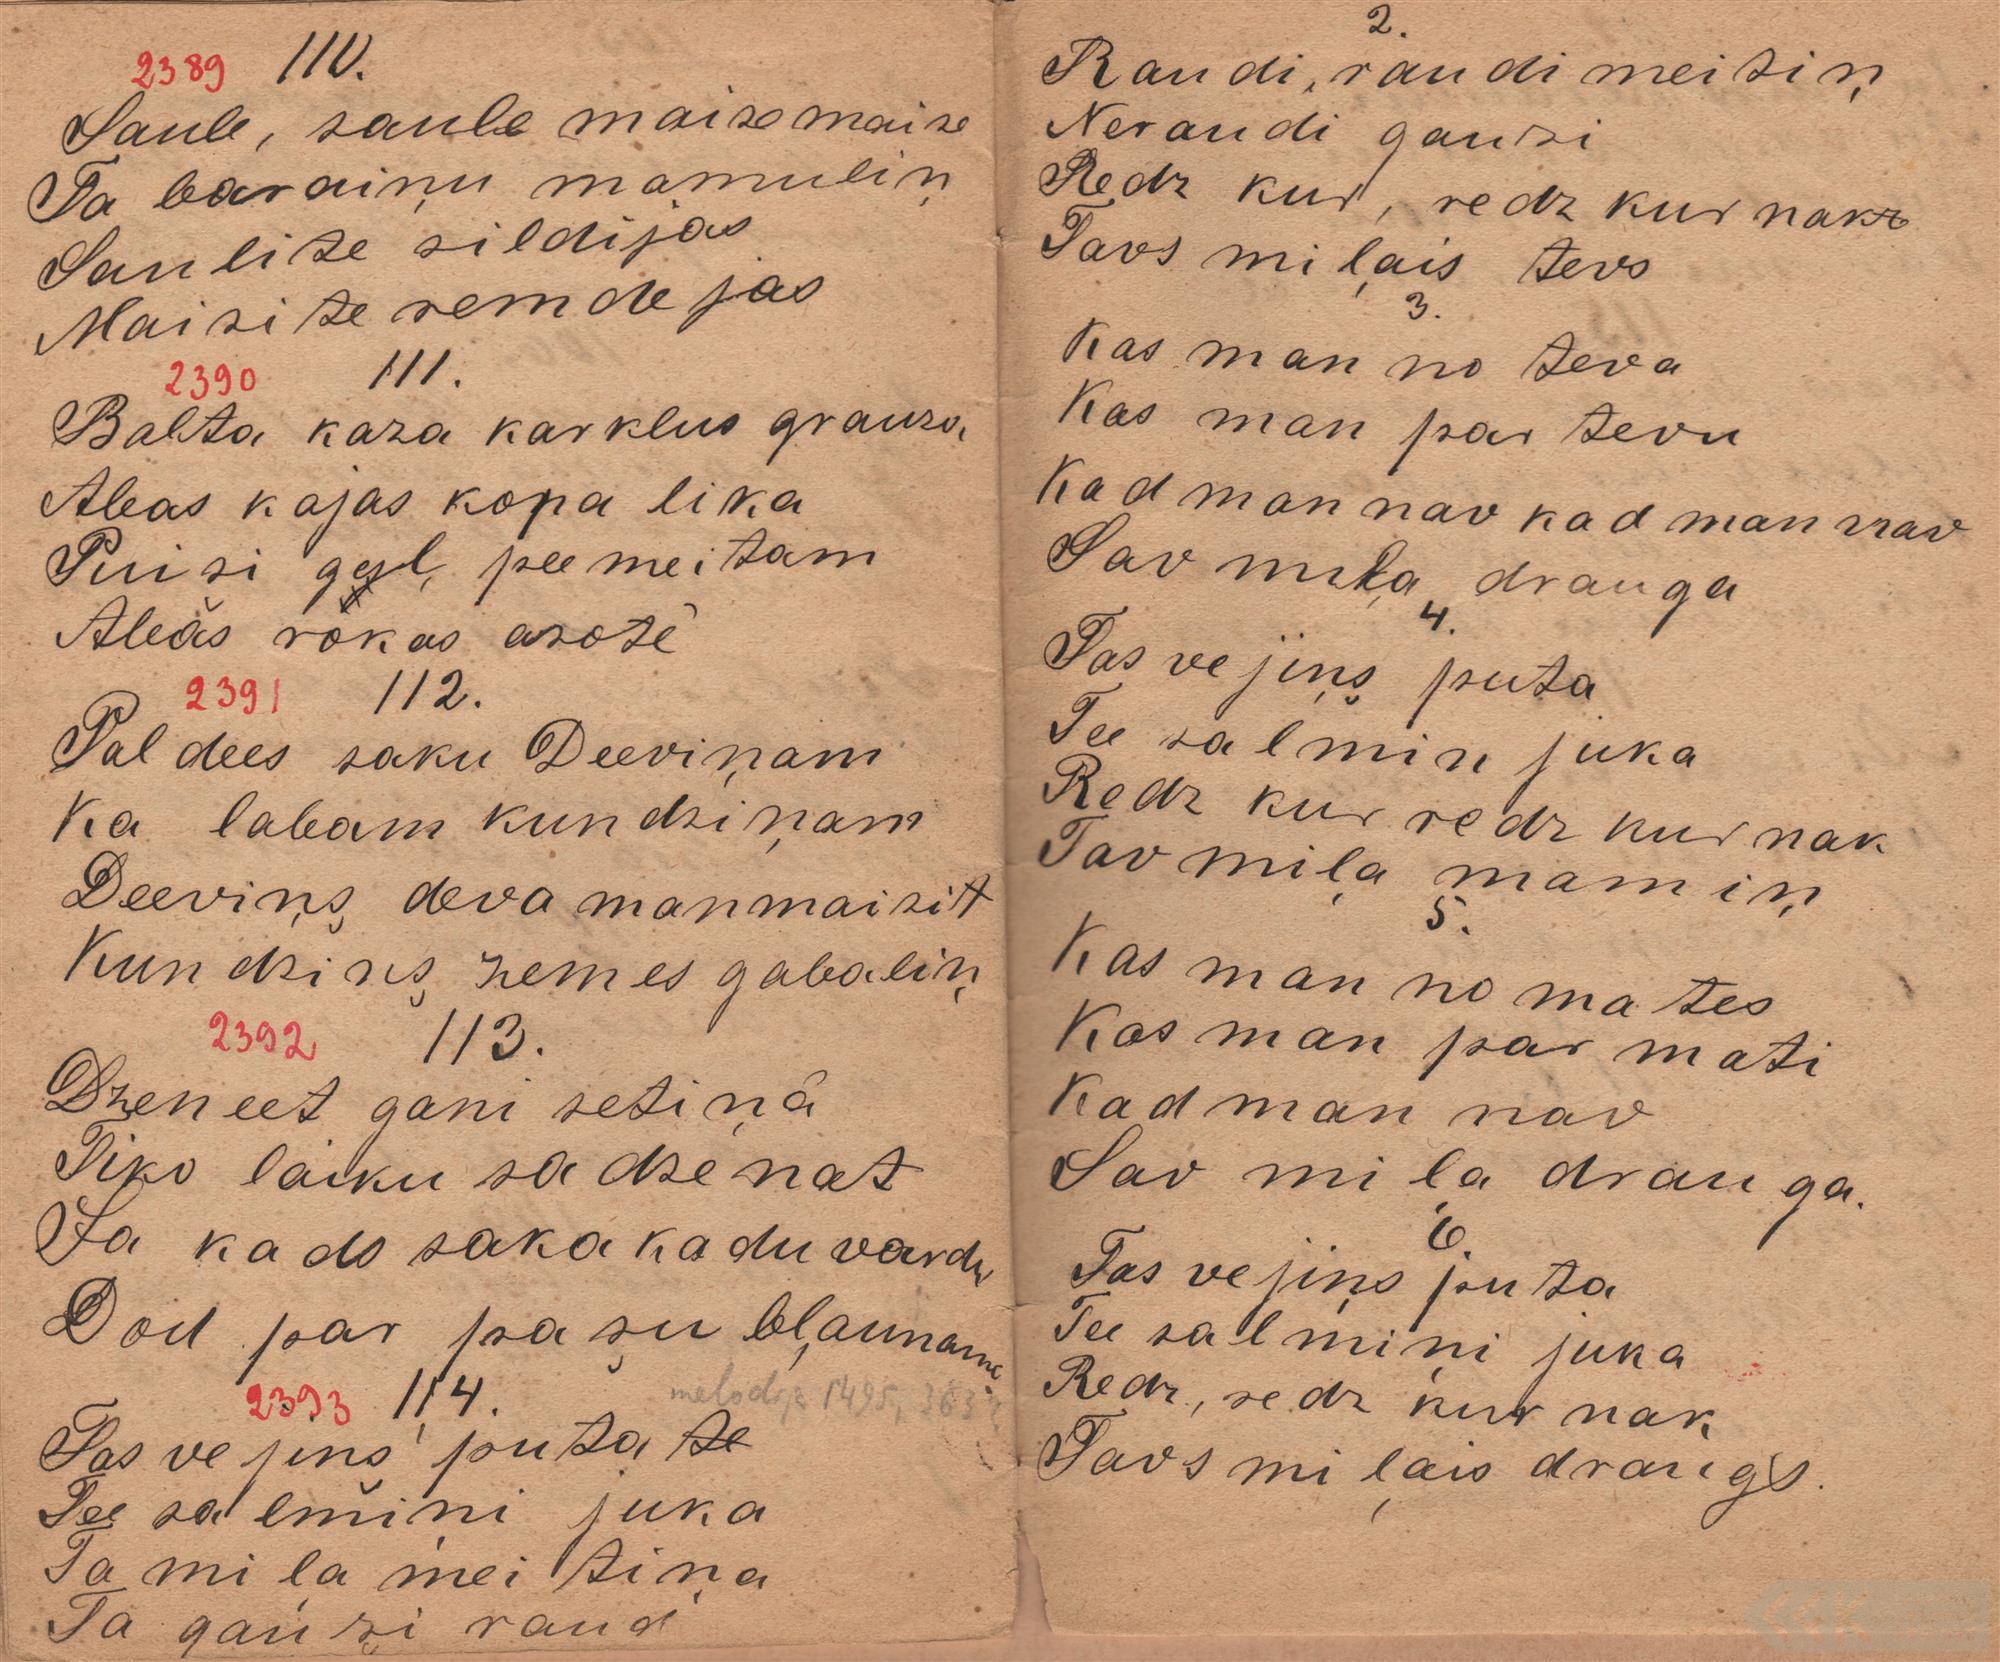 2389 110.
Saule, saule maise maise
Ta baraiņu mamuliņ
Saulite sildijas
Maisite remdejas
2390 111.
Balta kaza karklus grauza
Abas kajas kopa lika
Puisi gul pee meitam
Abās rokas azotē
2391 112.
Paldees saku Deeviņam
Ka labam kundziņam
Deeviņş deva man maizit
Kundziņş zemes gabaliņ
2392 113.
Dzeneet gani setiņā
Tiko laiku sadzenat
Ja kads saka kadu vardu
Dod par pasu bļauname
2393 114.
melodija 1495,
Tas vejiņs puta te
Tee salmiņi juka
Ta mila meitiņa
Ta gauzi raud
2.
Raudi, raudi meitiņ
Neraudi gauzi
Redz kur, redz kur nak
Tavs miļais tevs
3.
Kas man no teva
Kas man par tevu
Kad man nav kad man nav
Sav miļa drauga
4.
Tas vejiņş puta
Tee salmin juka
Redz kur redz kur nak
Tav miļa mamiņ
5.
Kas man no mates
Kas man par mati
Kad man nav
Sav miļa drauga.
6.
Tas vejiņs puta
Tee salmiņi juka
Redz, redz kur nak
Tavs miļais draugs.